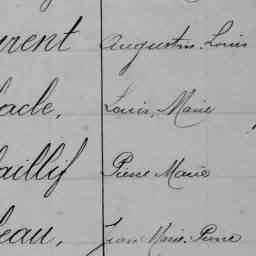 urent Augustin Louis
acle, Louis, Marie
aillif Pierre Marie
eau, Jean Marie Pierre